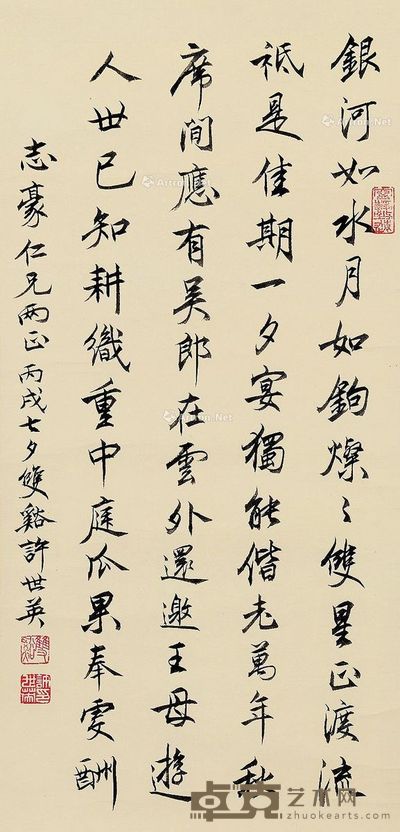 銀河如水月如鈎燦〻雙星正渡流
祗是佳期一夕宴獨能偕老萬年秋
席間應有吳郎在雲外還邀王母遊
人世已知耕織重中庭瓜果奉雯酬
志豪仁兄兩正丙戌七夕雙谿許世英
Artron.Net
卓克艺术网
www.zhuokearts.com